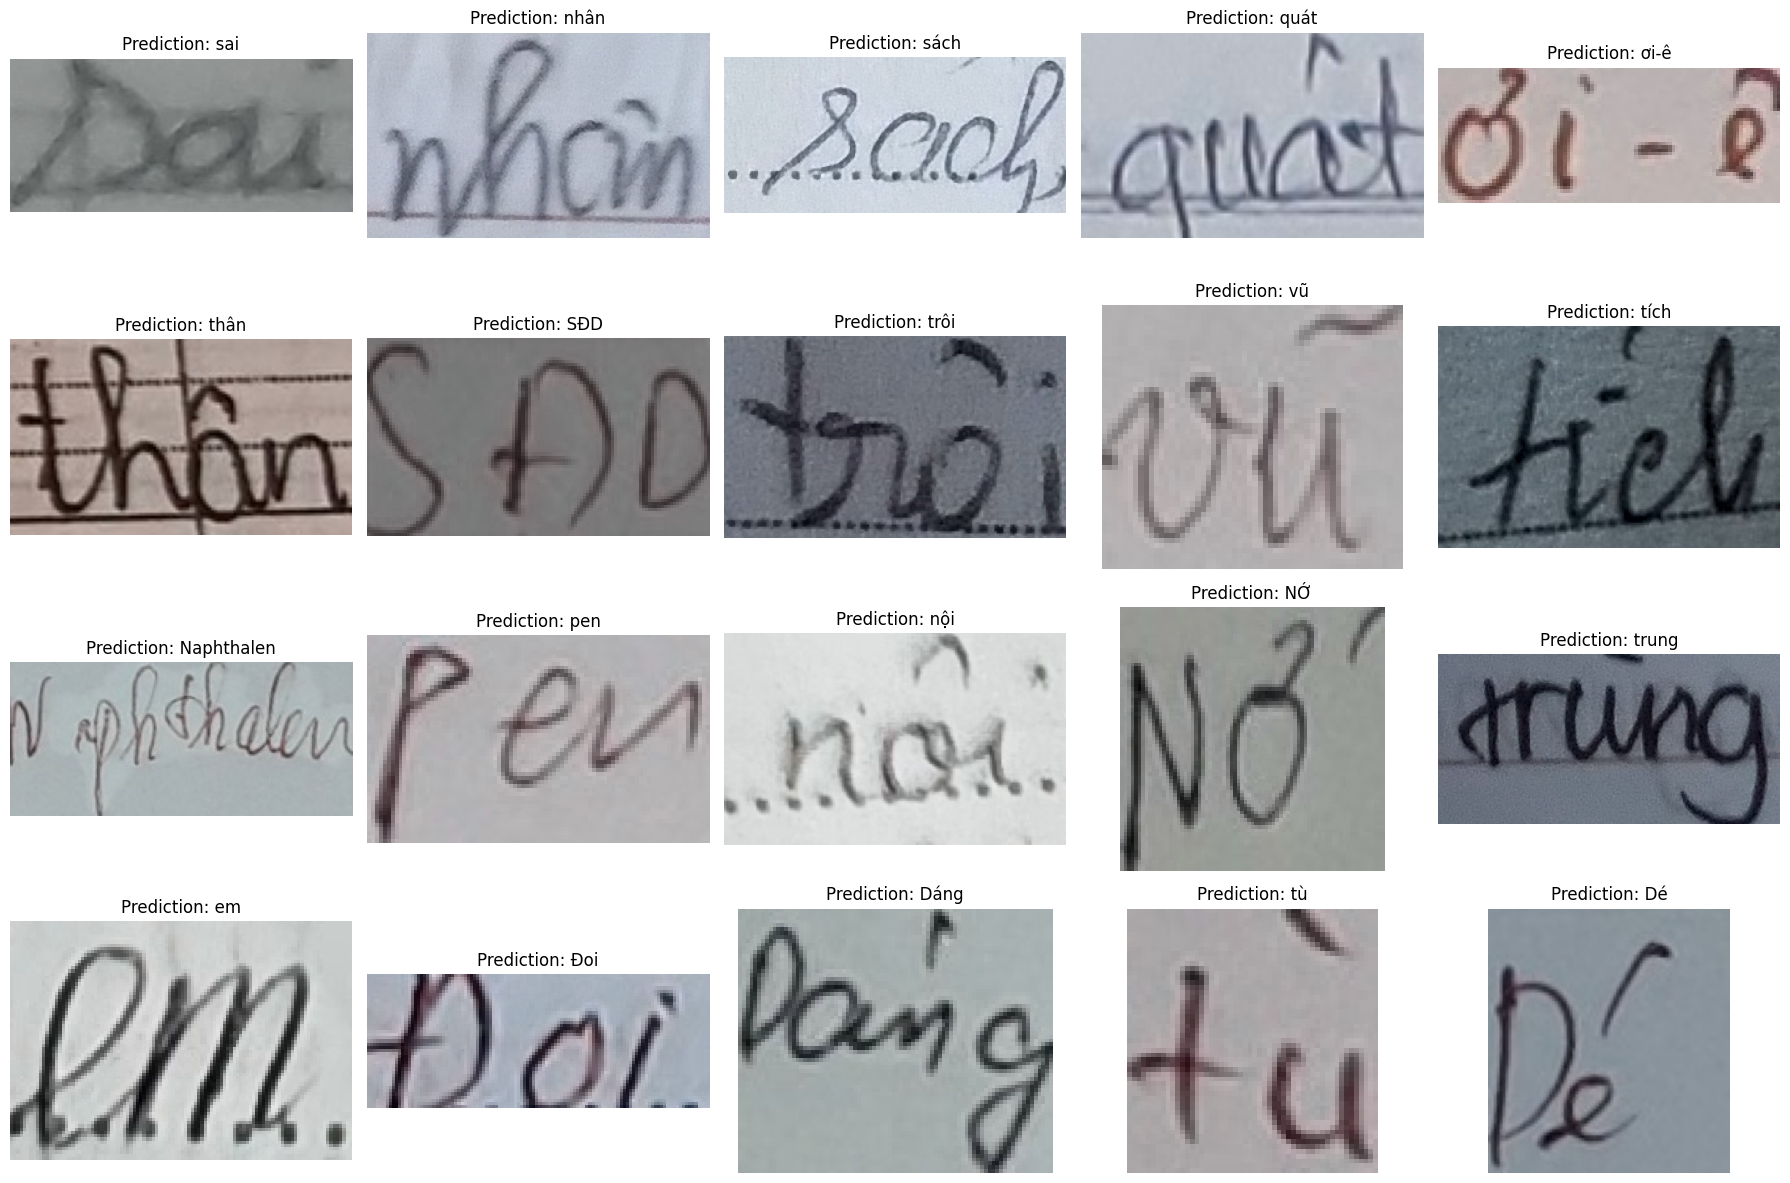 Prediction: sai
sai
Prediction: nhân
nhân
Prediction: sách
sách
Prediction: quát
quát
Prediction: ơi-ê
ơi - ê
Prediction: thân
thân
Prediction: SĐD
SĐD
Prediction: trôi
trôi
Prediction: vũ
vũ
Prediction: tích
tích
Prediction: Naphthalen
Naphthalen
Prediction: pen
pen
Prediction: nội
nội
Prediction: NỚ
NỚ
Prediction: trung
trung
Prediction: em
em
Prediction: Đoi
Đoi
Prediction: Dáng
Dáng
Prediction: tù
tù
Prediction: Dé
Dé